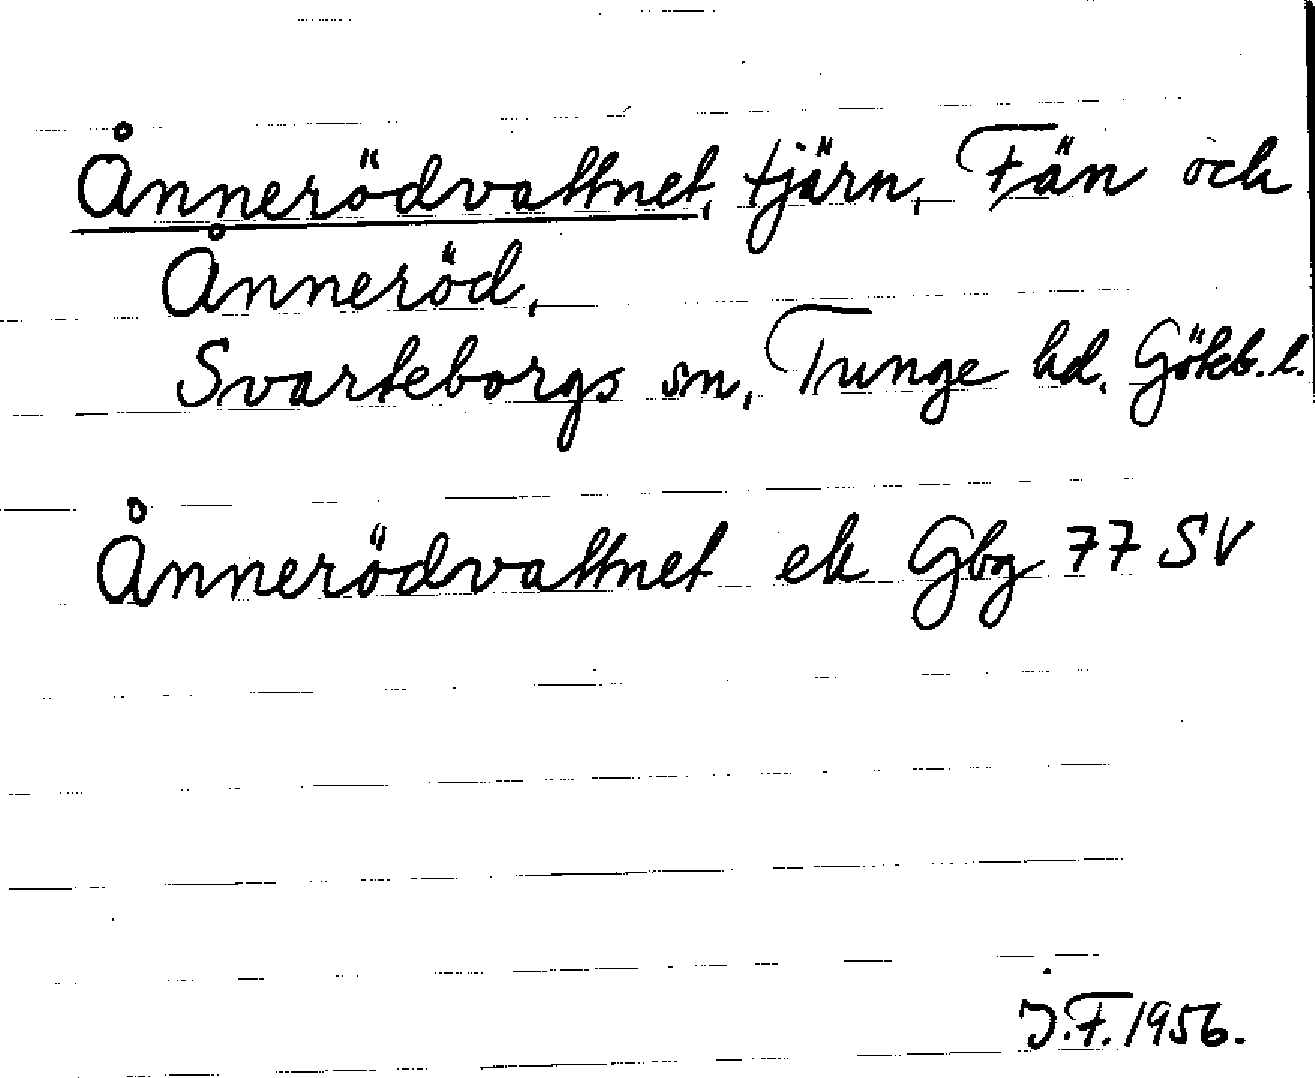 Ånnerödvattnet, tjärn, Fän och
Ånneröd,
Svarteborgs sn, Tunge hd. Göteb. l.
Ånnerödvattnet ek Gbg 77 SV
J.F. 1956.